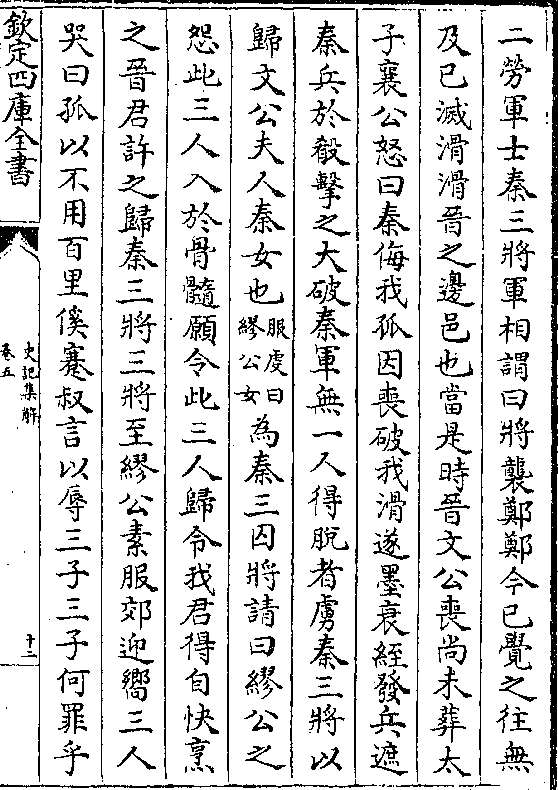 二勞軍士秦三將軍相謂曰將襲鄭鄭今已覺之往無
及已滅滑滑晉之邊邑也當是時晉文公喪尚未葬太
子襄公怒曰秦侮我孤因喪破我滑遂墨衰絰發兵遮
秦兵於殽擊之大破秦軍無一人得脫者虜秦三將以
歸文公夫人秦女也服虔曰繆公女為秦三囚將請曰繆公之
怨此三人入於骨髓願令此三人歸令我君得自快烹
之晉君許之歸秦三將三將至繆公素服郊迎嚮三人
哭曰孤以不用百里傒蹇叔言以辱三子三子何罪乎
欽定四庫全書
史記集解
卷五
十二